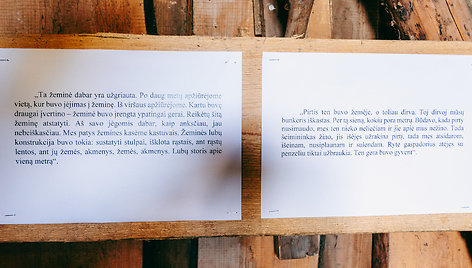 „Ta žeminė dabar yra užgriauta. Po daug metų apžiūrėjome
vietą, kur buvo įėjimas į žeminę. Iš viršaus apžiūrėjome. Kartu buvę
draugai įvertino – žeminė buvo įrengta ypatingai gerai. Reikėtų šitą
žeminę atstatyti. Aš savo jėgomis dabar, kaip anksčiau, jau
nebeiškasčiau. Mes patys žemines kasėme kastuvais. Žeminės lubų
konstrukcija buvo tokia: sustatyti stulpai, iškloti rąstais, ant rąstų
lentos, ant jų žemės, akmenys, žemės, akmenys. Lubų storis apie
vieną metrą“.
„Pirtis ten buvo žemėje, o toliau dirva. Toj dirvoj mūsų
bunkeris iškastas. Per tą sieną, kokiu pora metrų. Būdavo, kada pirty
nusimaudo, mes ten nieko neliečiam ir jie apie mus nežino. Tada
šeimininkas žino, jis išėjęs užrakina pirtį, tada mes atsidarom,
išeinam, nusiplaunam ir sulendam. Rytė gaspadorius atėjęs su
penzeliu tiktai užbraukia. Ten gera buvo gyvent“.